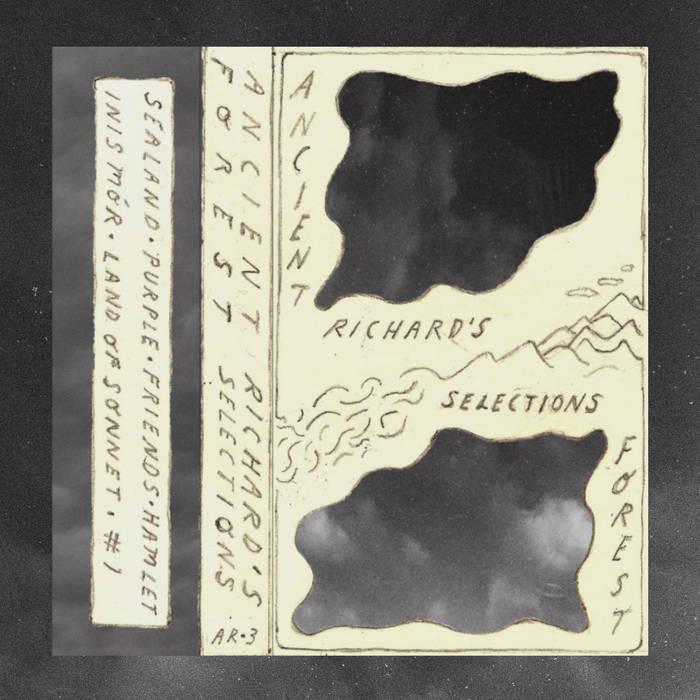 SEALAND • PURPLE • FRIENDS • HAMLET
INIS MÓR • LAND OF SONNET • #1
ANCIENT RICHARD'S
FOREST SELECTIONS
AR-3
ANCIENT
RICHARD'S
SELECTIONS
FOREST